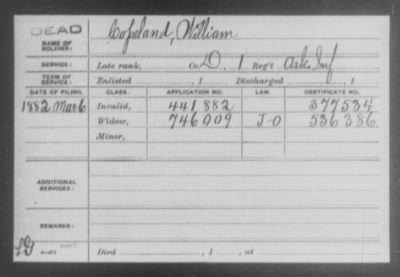 DEAD
NAME OF SOLDIER: Copeland, William
SERVICE: Late rank, Co. D, 1 Reg't Ark Inf
TERM OF SERVICE: Enlisted , 1 Discharged , 1
DATE OF FILING. CLASS. APPLICATION NO. LAW. CERTIFICATE NO.
1882 Mar 6 Invalid, 441 882 377534
Widow, 746009 J-O 536386
Minor,
ADDITIONAL SERVICES:
REMARKS:
Died , 1 , at